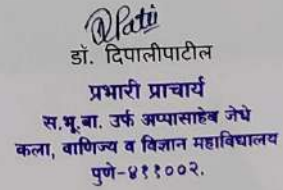 डॉ. दिपालीपाटील
प्रभारी प्राचार्य
स.भू.बा. उर्फ अप्पासाहेब जेधे
कला, वाणिज्य व विज्ञान महाविद्यालय
पुणे-४११००२.